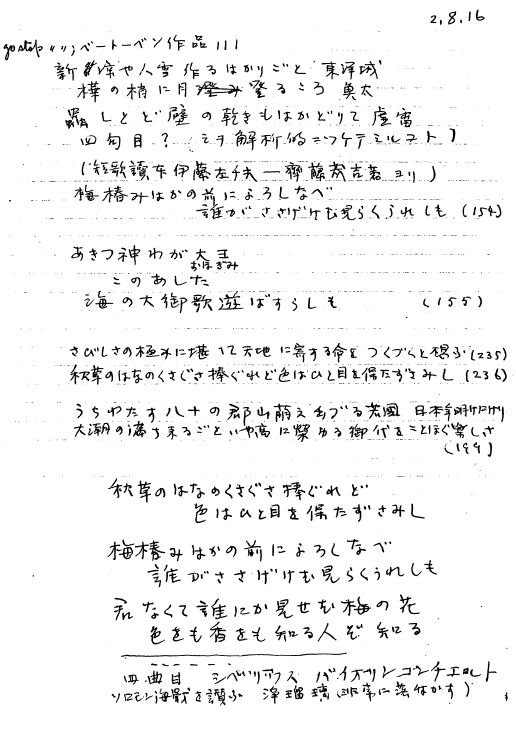 2.8.16
go stop 〃〃; ベートーベン作品 111
新 席や人雪作るはかりごと 東洋城
樺の梢に月登るころ 寅太
しとど壁の乾きもはかどりて 虚雷
四句目?
(短歌讀本伊藤左千夫—齊藤茂吉著ヨリ)
梅椿みはかの前によろしなべ
誰がささげけむ見らくうれしも (154)
あきつ神わが大王
おほぎみ
このあした
海の大御歌遊ばすらしも (155)
さびしさの極みに堪て天地に寄する命をつくづくと想ふ (235)
秋草のはなのくさぐさ捧ぐれど色はひと目を保たずさみし (236)
うちわたす八十の郡山萌え
大潮の満ち来るごといや高に榮ゆる御代をことほぐ
(199)
秋草のはなのくさぐさ捧ぐれど
色はひと目を保たずさみし
梅椿みはかの前によろしなべ
誰がささげけむ見らくうれしも
君なくて誰にか見せむ梅の花
色をも香をも知る人ぞ知る
四曲目 シベリアス バイオリンコンチェルト
ソロモン海戦を讃ふ 浄瑠璃